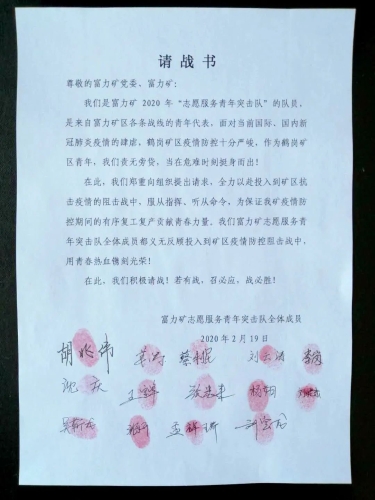 请战书
尊敬的富力矿党委、富力矿：
我们是富力矿 2020 年“志愿服务青年突击队”的队员，
是来自富力矿区各条战线的青年代表，面对当前国际、国内新
冠肺炎疫情的肆虐，鹤岗矿区疫情防控十分严峻，作为鹤岗矿
区青年，我们责无旁贷，当在危难时刻挺身而出！
在此，我们郑重向组织提出请求，全力以赴投入到矿区抗
击疫情的阻击战中，服从指挥、听从命令，为保证我矿疫情防
控期间的有序复工复产贡献青春力量。我们富力矿志愿服务青
年突击队全体成员都义无反顾投入到矿区疫情防控阻击战中，
用青春热血镌刻光荣！
在此，我们积极请战！若有战，召必应，战必胜！
富力矿志愿服务青年突击队全体成员
2020 年 2 月 19 日
胡兆伟
沈庆 杨朝
孟祥珩